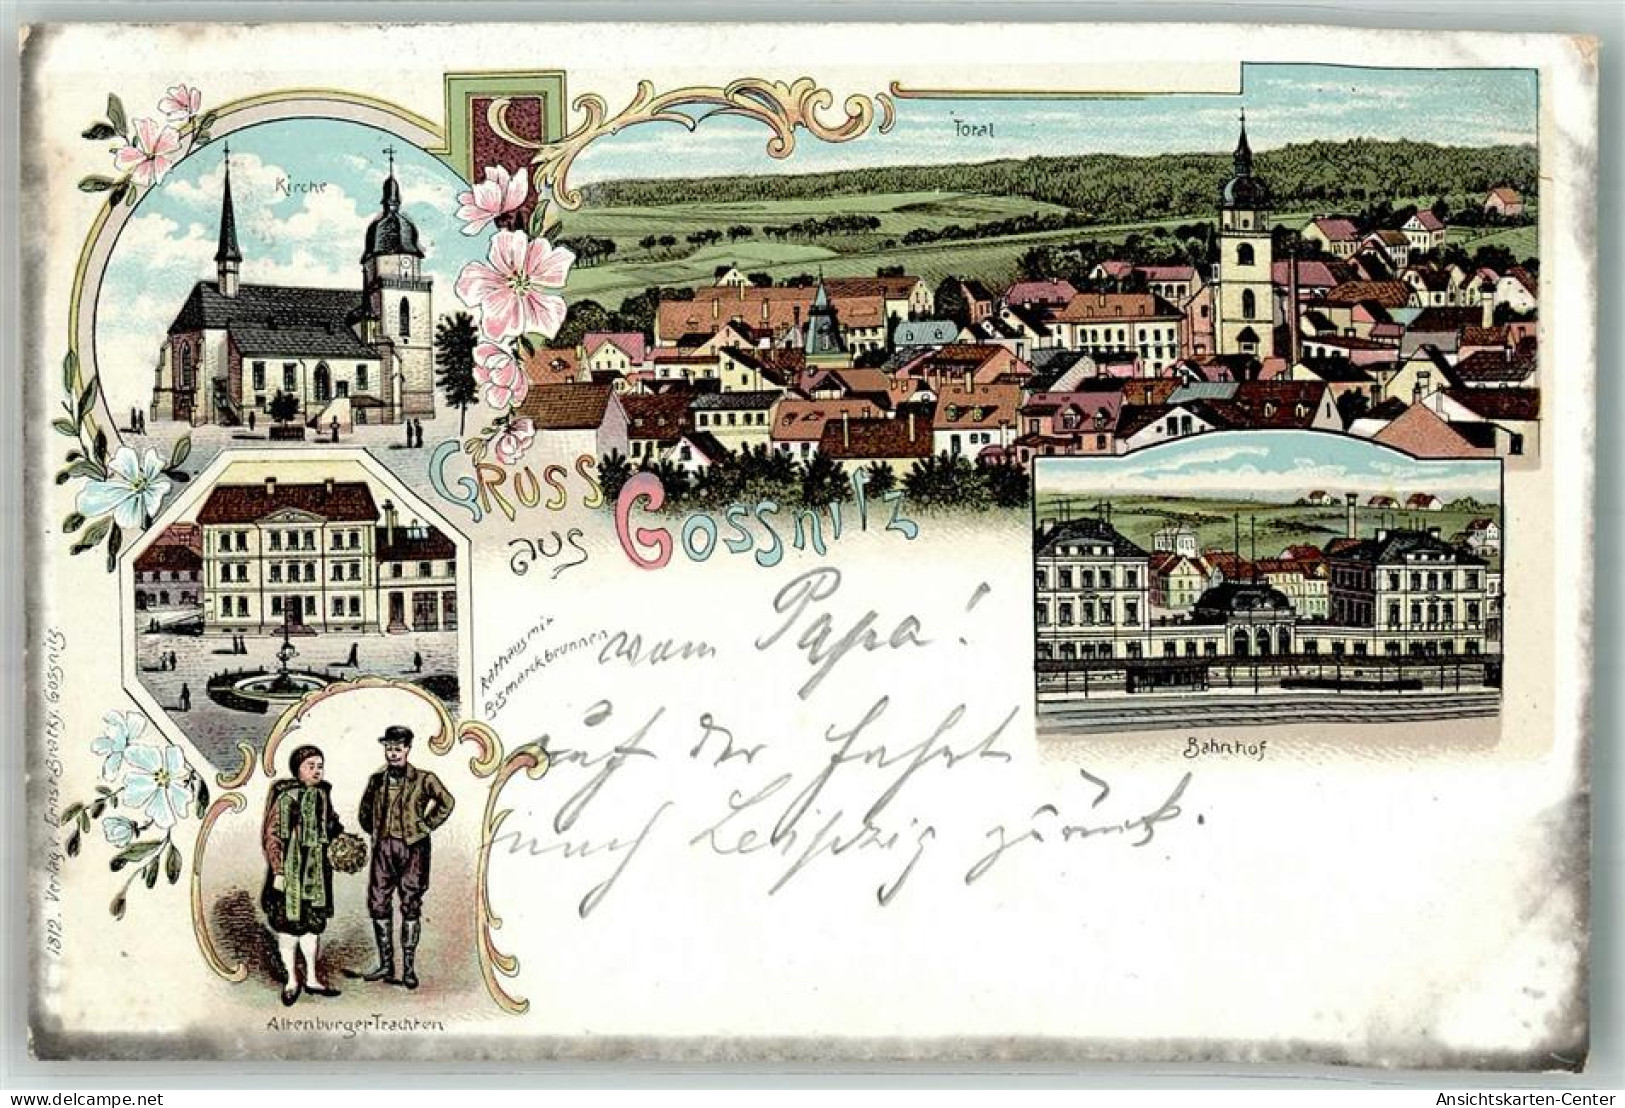 Kirche
Total
Gruss
aus Gossnitz
Rathaus mit
Bismarckbrunnen
Bahnhof
Altenburger Trachten
1812. Verlag v. Ernst Brotkr. Gossnitz.
vom Papa!
auf der Fahrt
nach Leipzig zurück.
www.ak-ansichtskarten.de
Ansichtskarten-Center